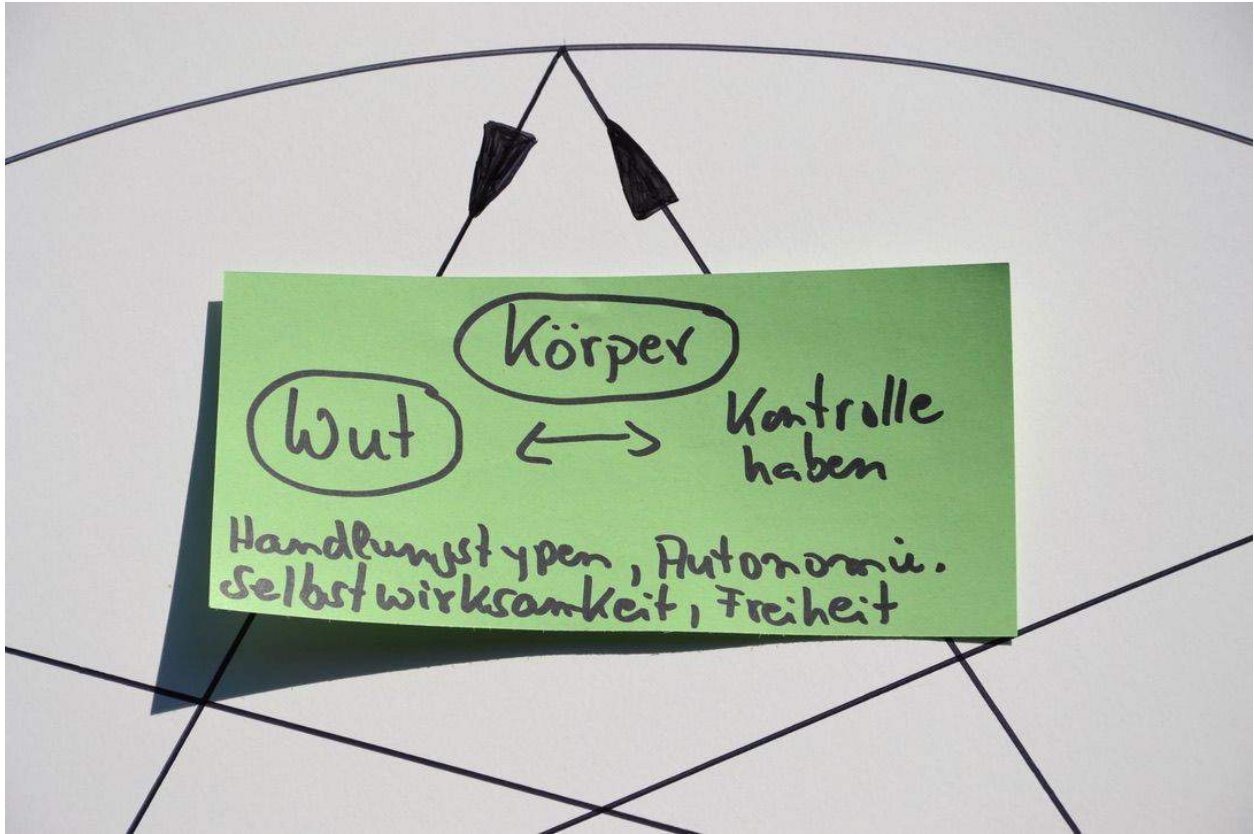 Körper
Wut ↔ Kontrolle
haben
Handlungstypen, Autonomie.
Selbstwirksamkeit, Freiheit